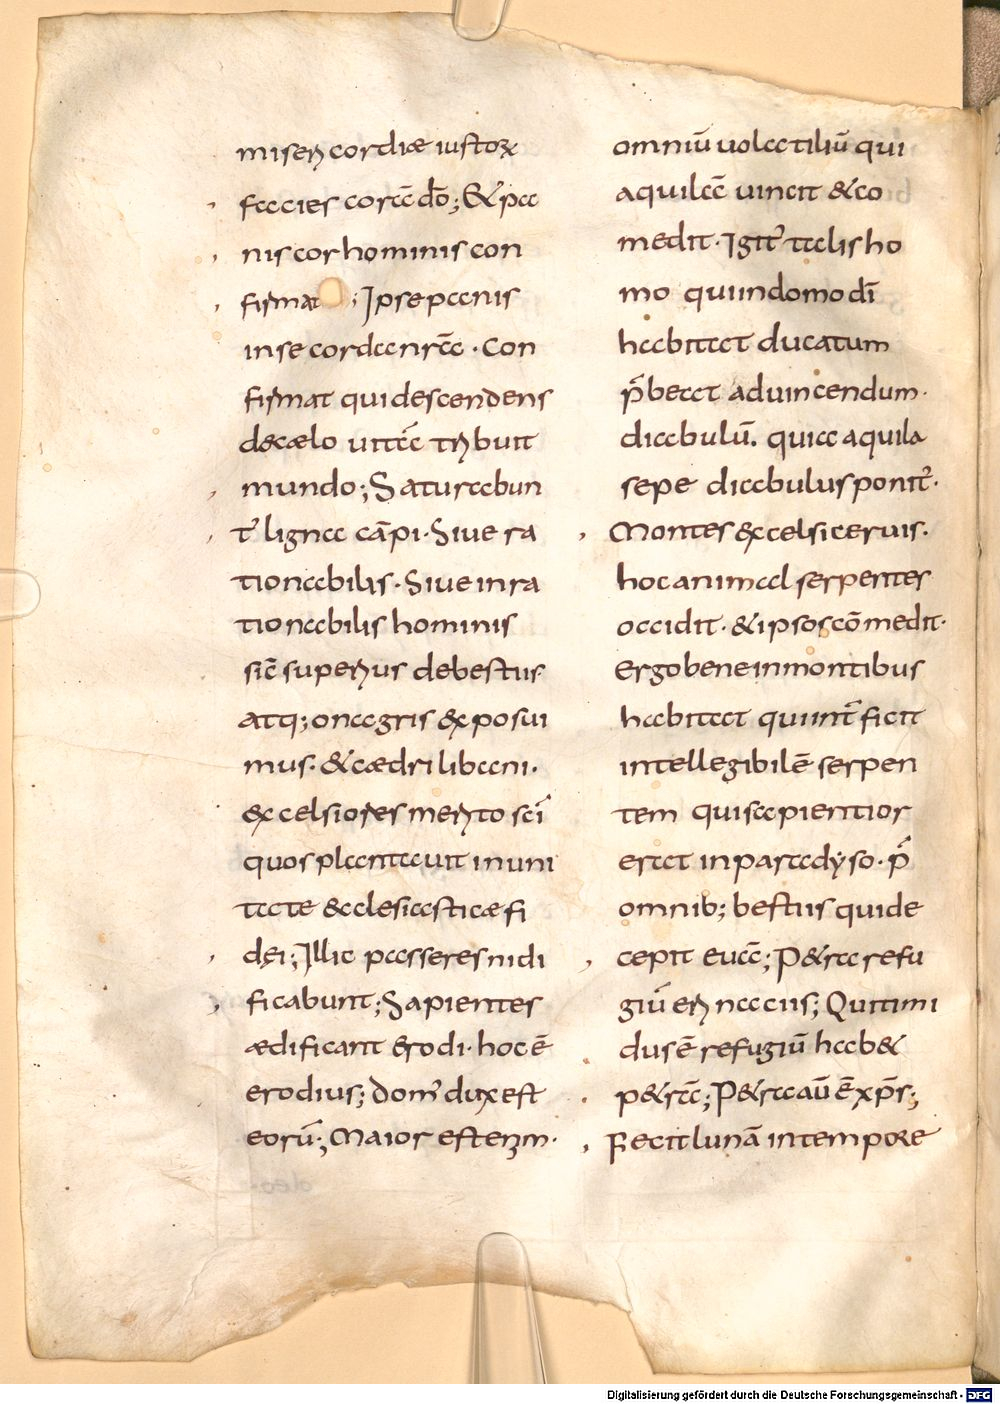 misericordiæ iustoꝝ
facies corā dō; & pa
nis cor hominis con
firmat; Ipse panis
inse corda nr̄a · Con
firmat qui descendens
de cælo uitā tribuit
mundo; Saturabun
t᷑ ligna cāpi · Siue ra
tionabilis · Siue inra
tionabilis hominis
sic̄ superius de bestiis
atq; onagris exposui
mus · & cædri libani ·
excelsiores merito sc̄i
quos plantauit in uni
tate ecclesiasticæ fi
dei; Illic passeres nidi
ficabunt; Sapientes
ædificant erodi · hoc ē
erodius; Dom᷑ dux est
eorū; Maior est enim ·
omniū uolatiliū qui
aquilā uincit & co
medit · Igit᷑ talis ho
mo qui indomo dī
habitat ducatum
p̄bet aduincendum ·
diabulū. quia aquila
sepe diabulus ponit᷑ ·
Montes excelsi ceruis ·
hoc animal serpentes
occidit · & ipsos cōmedit ·
Ergo bene in montibus
habitat qui int̄ficit
intellegibilē serpen
tem qui sapientior
erat in paradyso · p̄
omnib; bestiis qui de
cepit euā; Petra refu
giū erinaciis; Qui timi
dus ē refugiū hab&
petrā; Petra aū ē xp̄s;
Fecit lunā in tempore
Digitalisierung gefördert durch die Deutsche Forschungsgemeinschaft · DFG